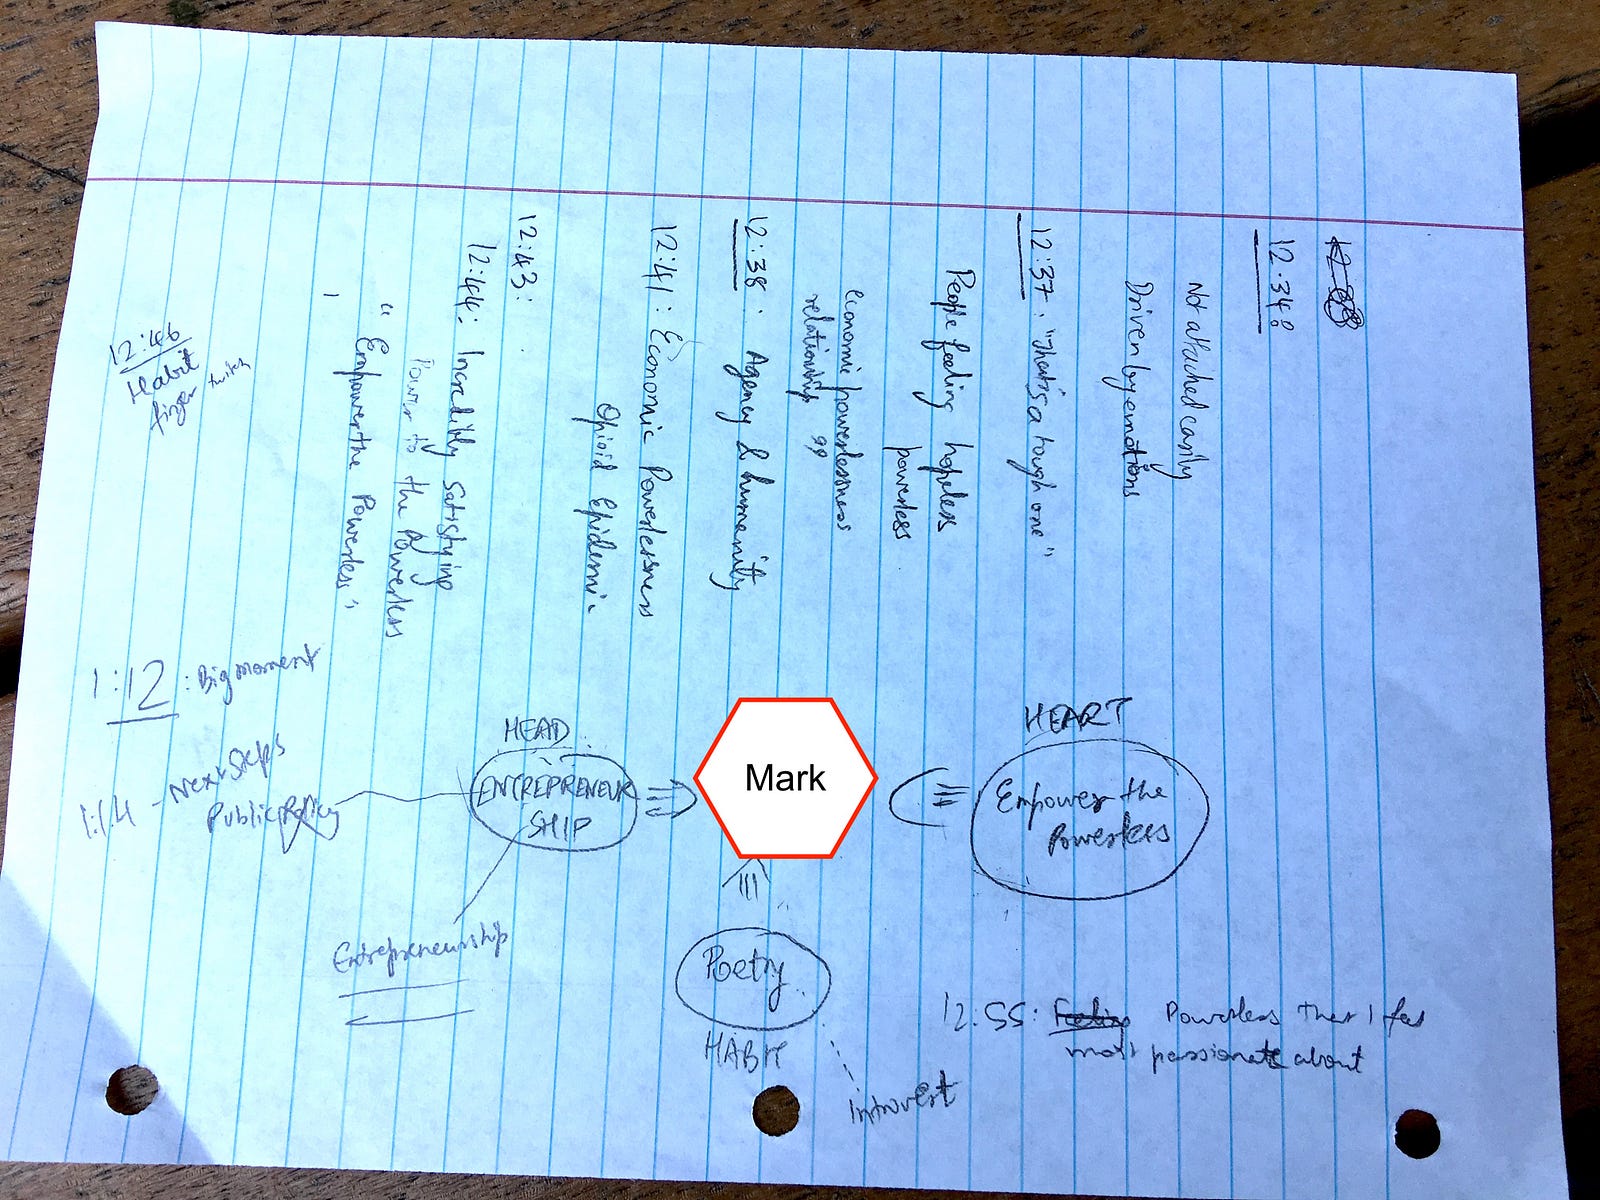 12:34:
Not attached easily
Driven by emotions
12:37: "that's a tough one"
People feeling hopeless
powerless
economic powerlessness
relationship
12:38: Agency & humanity
12:41: Economic Powerlessness
Opioid Epidemic
12:43:
12:44: Incredibly satisfying
Power to the Powerless
"Empower the Powerless"
12:46
Habit
finger twitch
1:12: Big moment
1:14 - Next Steps
Public Policy
HEAD
ENTREPRENEUR
SHIP
Entrepreneurship
Mark
HEART
Empower the
Powerless
Poetry
HABIT
Introvert
12.55: Powerless that I feel
most passionate about